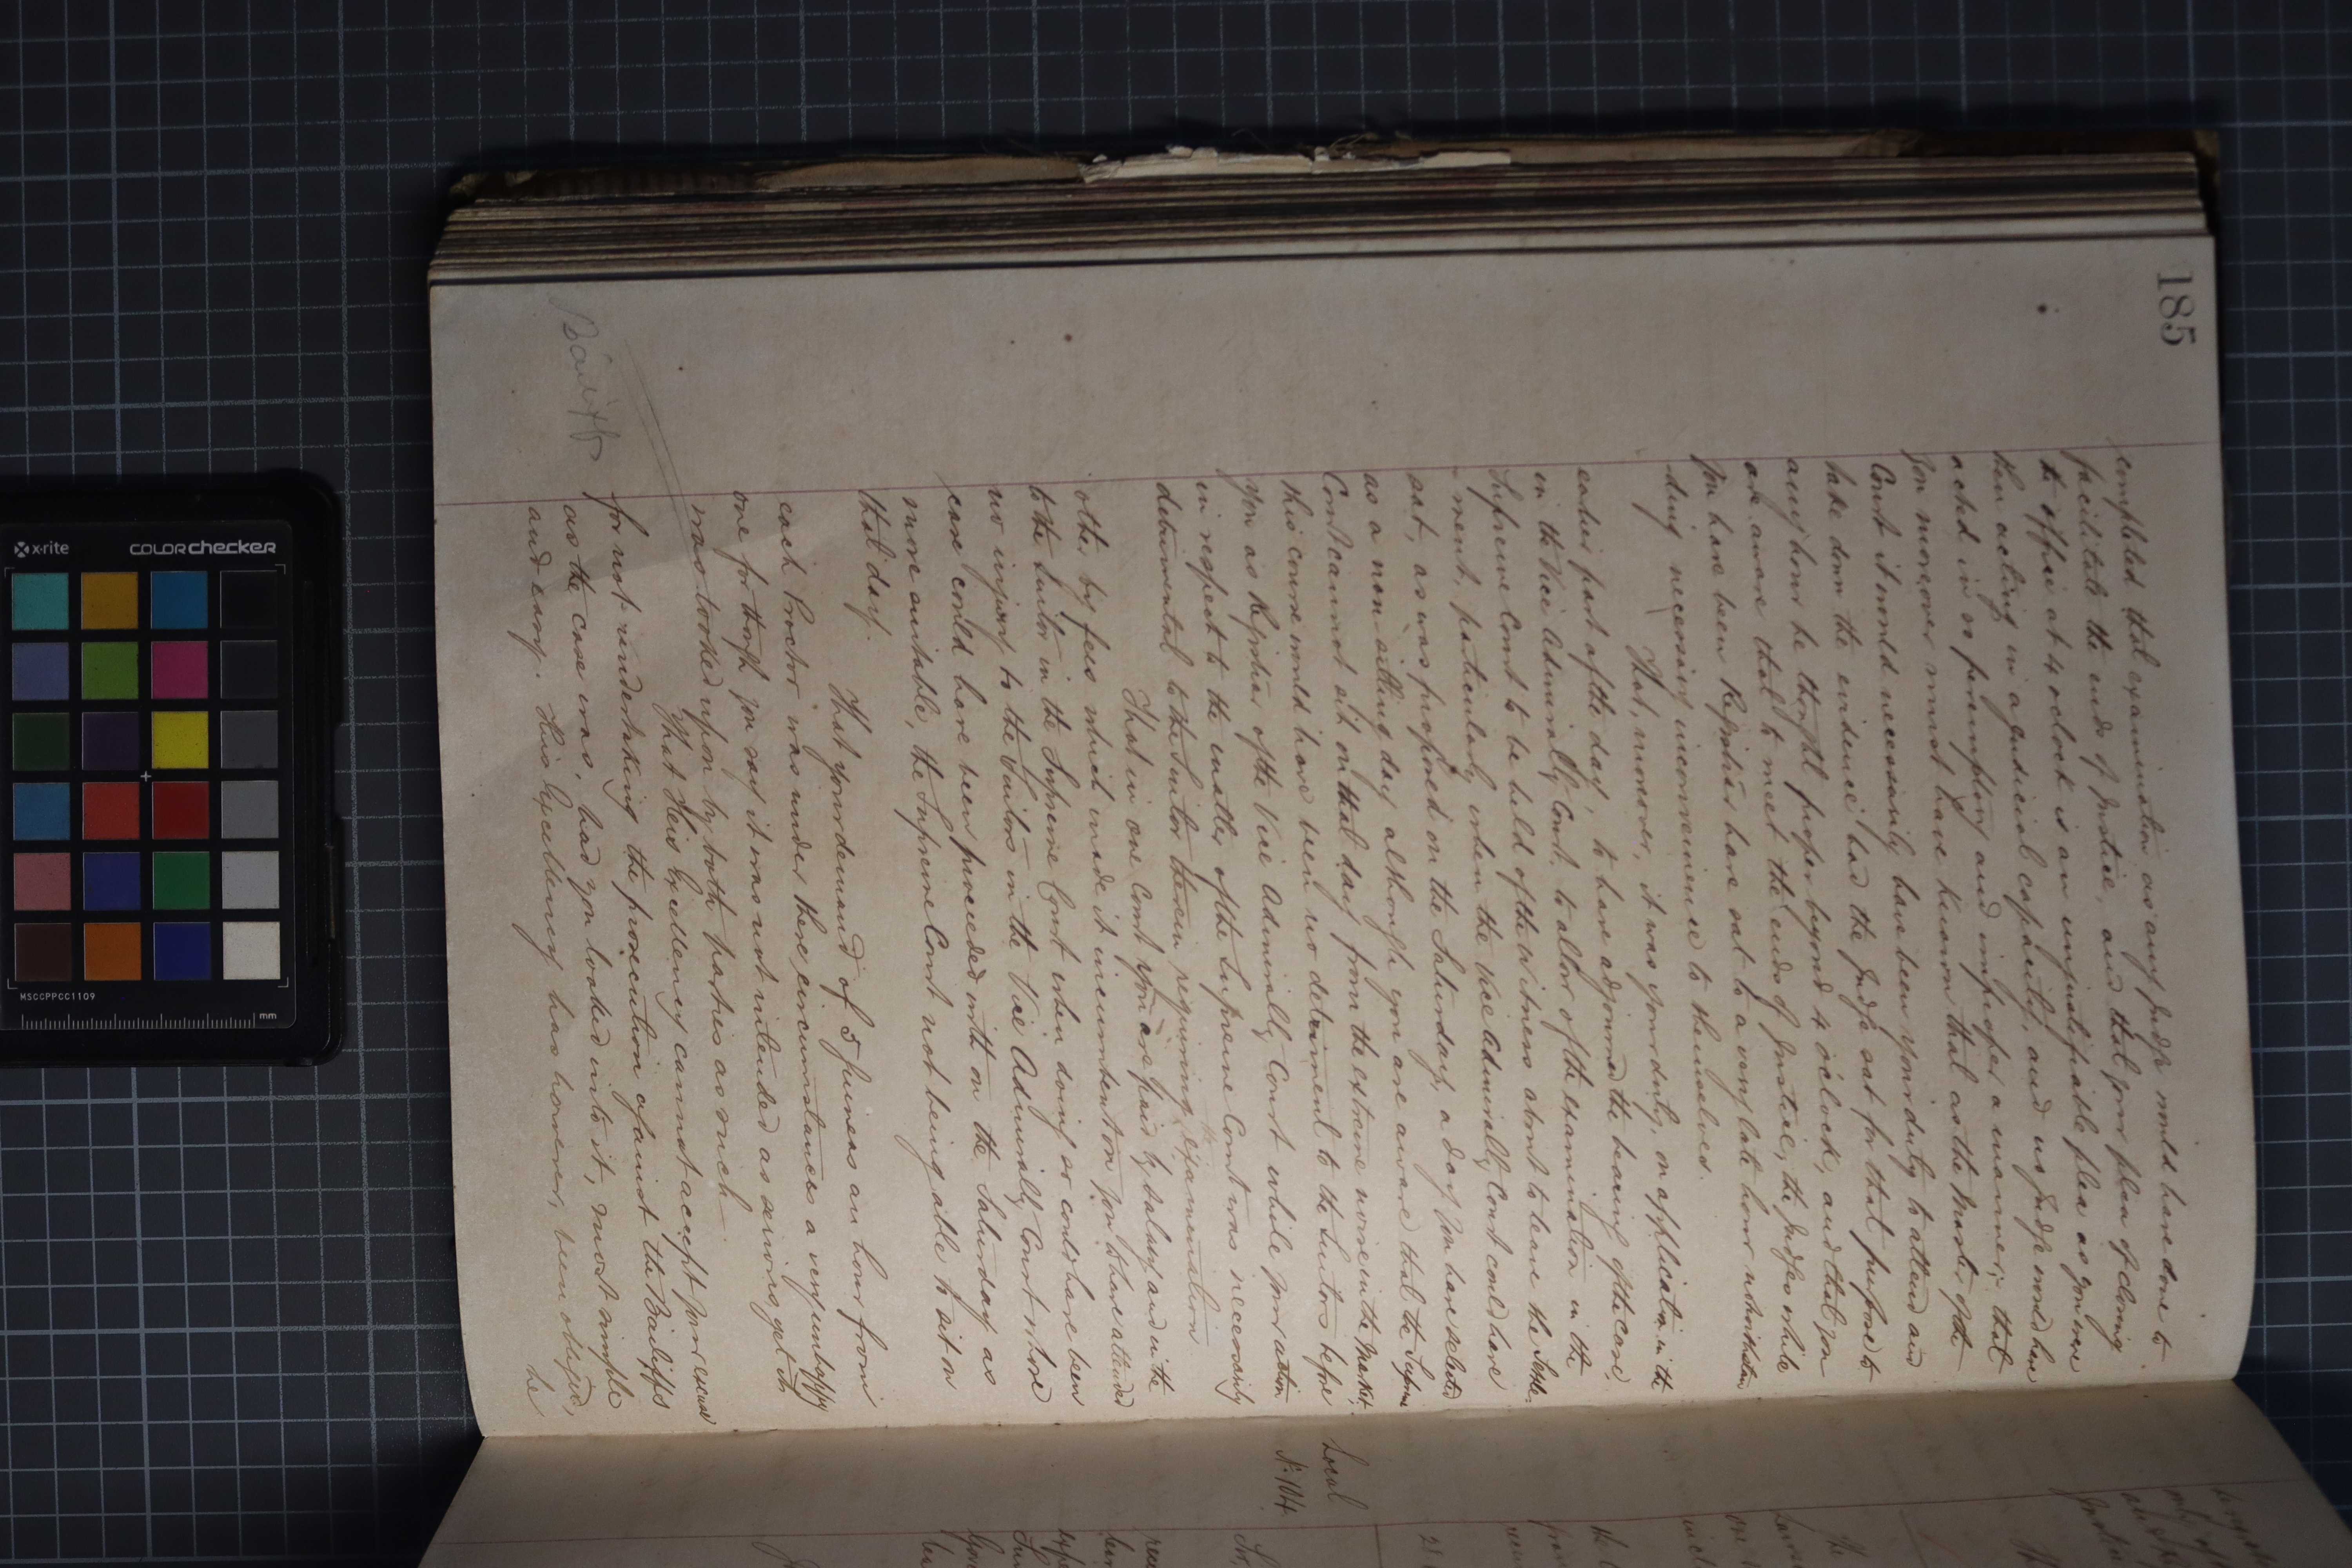 185
completed that examination as any Judge would have done to
facilitate the ends of Justice, and that your plea of closing
the office at 4 oclock is an unjustifiable plea as you were
then acting in a Judicial capacity, and no Judge would have
acted in so peremptory and improper a manner; that
you moreover must have known that as the Master of the
Court it would necessarily have been your duty to attend and
take down the evidence had the Judge sat for that purpose to
any hour he thought proper beyond 4 o'clock, and that you
are aware that to meet the ends of Justice, the Judges while
you have been Registrar have sat to a very late hour notwithstan
-ding necessary inconvenience to themselves.
That, moreover, it was your duty, on application in the
earlier part of the day, to have adjourned the hearing of the case
in the Vice Admiralty Court, to allow of the examination in the
Supreme Court to be held of the Witness about to leave the Settle-
-ment, particularly when the Vice Admiralty Court could have
sat, as was proposed on the Saturday, a day you have selected
as a non sitting day although you are aware that the Supreme
Court cannot sit on that day from the extreme noise in the Market.
this course would have been no detriment to the Suitors before
you as Registrar of the Vice Admiralty Court while your action
in respect to the matter of the Supreme Court was necessarily
detrimental to the Suitor therein requiring the examination
That in one Court you are paid by salary and in the
other by fees which made it incumbent on you to have attended
to the Suitor in the Supreme Court when doing so could have been
no injury to the Suitors in the Vice Admiralty Court whose
case could have been proceeded with on the Saturday as
more suitable, the Supreme Court not being able to sit on
that day.
That your demand of 5 guineas an hour from
each Proctor was under these circumstances a very unhappy
one for though you say it was not intended as serious yet it
was looked upon by both parties as such
That His Excellency cannot accept your excuse
for not undertaking the prosecution against the Bailiffs
as the case was, had you looked into it, most simple
and easy. His Excellency has however, been obliged,
he
Bailiff
Local
No. 104